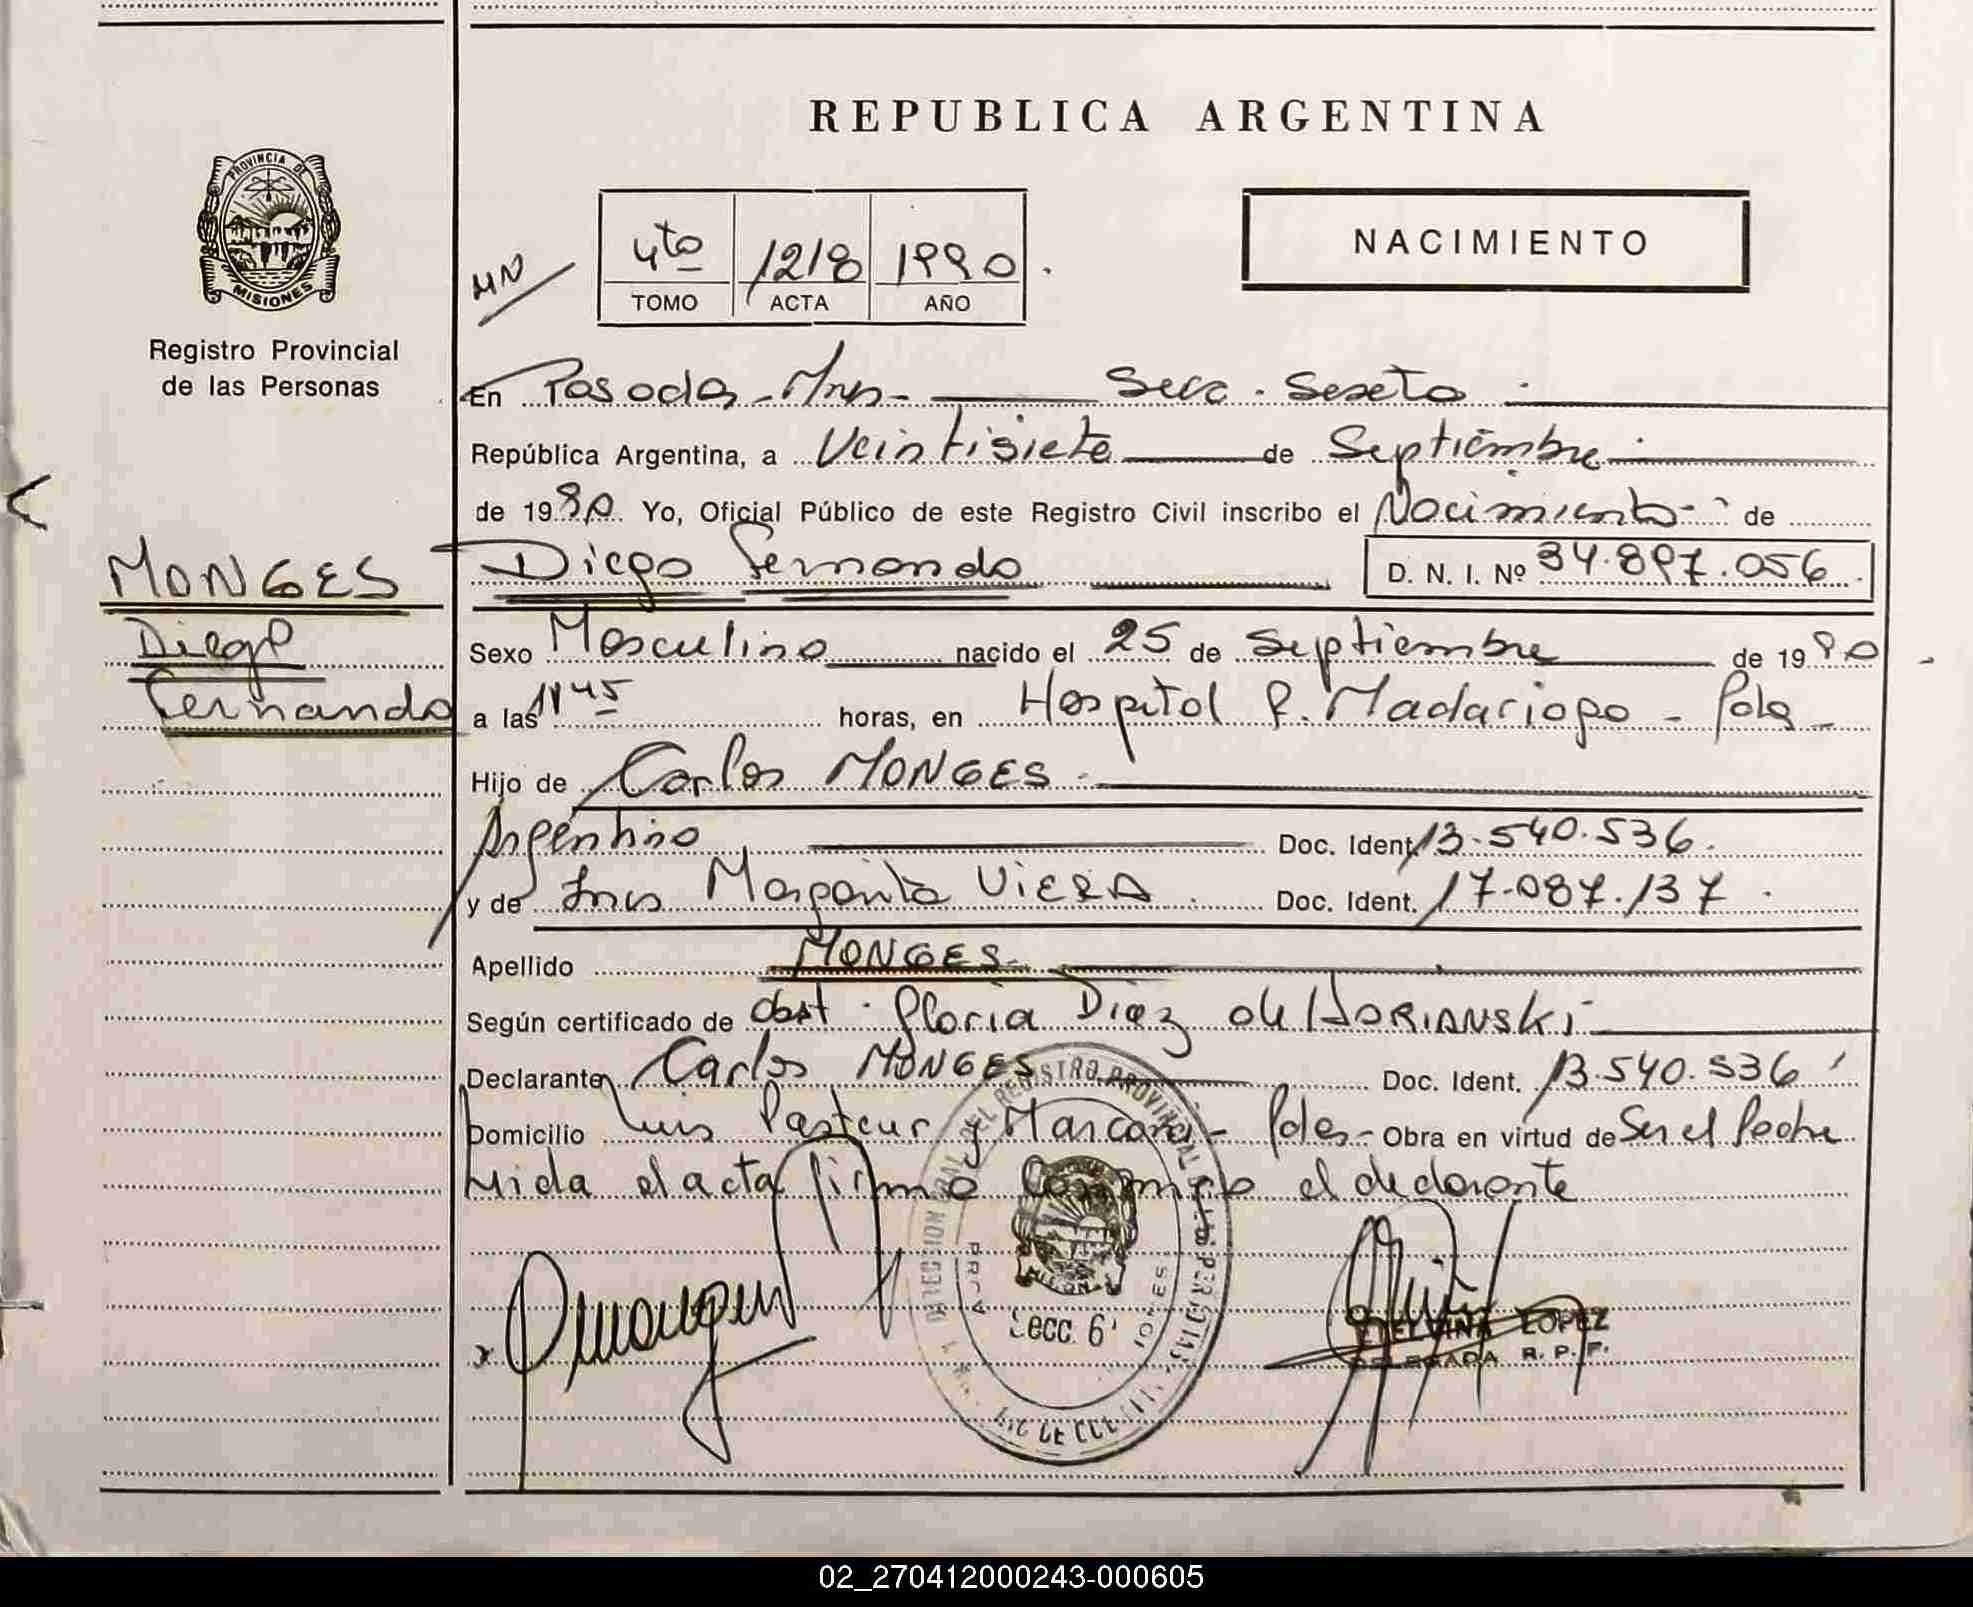 REPUBLICA ARGENTINA
PROVINCIA DE
MISIONES
Registro Provincial
de las Personas
MONGES
Diego
Fernando
4to 1218 1990.
TOMO ACTA AÑO
NACIMIENTO
En Posadas - Mnes - Secc. Sexta
República Argentina, a Veintisiete de Septiembre
de 1990 Yo, Oficial Público de este Registro Civil inscribo el Nacimiento - de
Diego Fernando D. N. I. Nº 34.897.056
Sexo Masculino nacido el 25 de Septiembre de 1990
a las 1145 horas, en Hospital R. Madariaga - Pdas -
Hijo de Carlos MONGES
Argentino Doc. Ident. 13.540.536.
y de Ines Margarita VIERA Doc. Ident. 17.087.137.
Apellido MONGES
Según certificado de Obst. Gloria Diaz de
Declarante Carlos MONGES Doc. Ident. 13.540.536
Domicilio Luis Pasteur y - Pdas - Obra en virtud de Ser el Padre
Leida el acta firma Conmigo el declarante
Secc. 6
ETELVINA LOPEZ
DELEGADA R. P. P.
02_270412000243-000605